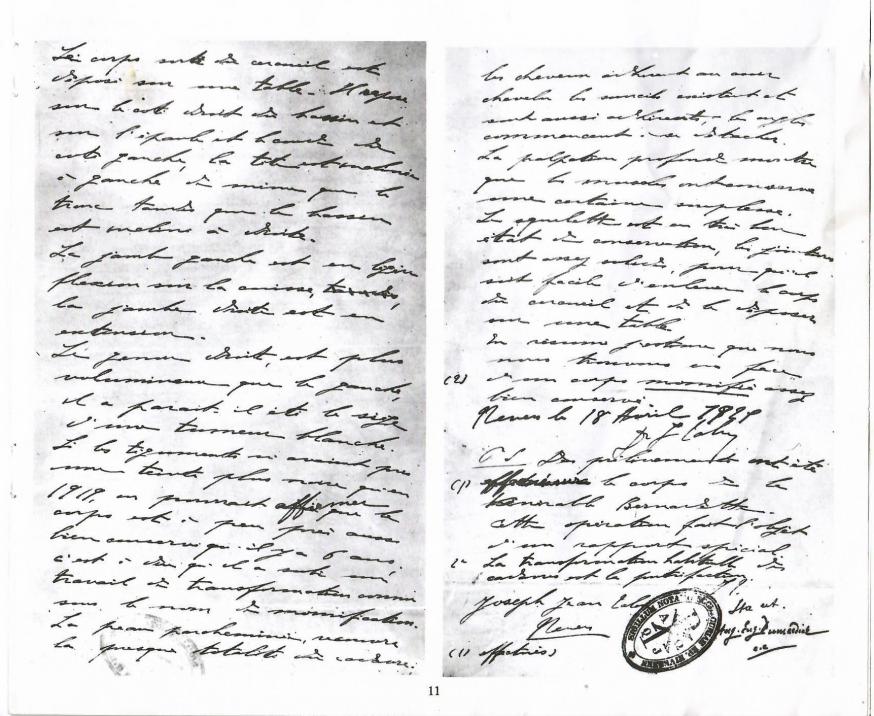 Le corps sorti du cercueil est
déposé sur une table. Il repose
sur le coté droit du bassin et
sur l'épaule et hanche du
coté gauche, la tête est inclinée
à gauche de même que le
tronc tandis que le bassin
est incliné à droite.
La jambe gauche est en légère
flexion sur la cuisse, tandis,
la jambe droite est en
extension.
Le genou droit, est plus
volumineux que le gauche,
il a parait il été le siège
d'une tumeur blanche
Si les téguments n'avaient pris
une teinte plus noire qu'en
1919 on pourrait affirmer que le
corps est à peu près aussi
bien conservé qu'il y a 6 ans,
c'est à dire qu'il a subi un
travail de transformation connu
sous le nom de momification.
La peau parcheminée, recouvre
la presque totalité du cadavre.
les cheveux adhèrent au cuir
chevelu les sourcils existent et
sont aussi adhérents, les ongles
commencent à se détacher.
La palpation profonde montre
que les muscles ont conservé
une certaine souplesse.
Le squelette est en très bon
état de conservation, les jointures
sont assez solides, pour qu'il
soit facile d'enlever le corps
du cercueil et de le déposer
sur une table
En résumé que nous
nous trouvons en face
(2) d'un corps momifié assez
bien conservé
Nevers le 18 Avril 1925
Dr J Talon
P S. Des prélèvements ont été
(1) le corps de la
Vénérable Bernadette.
cette opération fait l'objet
d'un rapport spécial
2- La transformation habituelle du
cadavre est la putréfaction
Joseph Jean Talon
Nevers
Ita est.
(1) effectués)
11